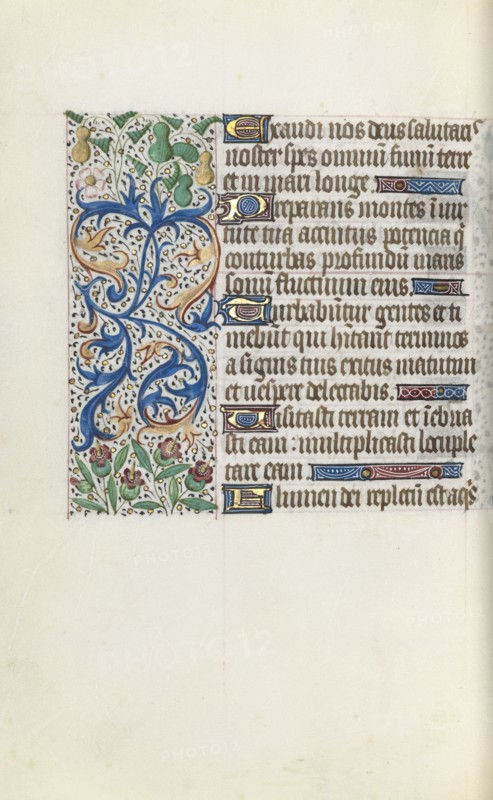 Exaudi nos deus salutaris
noster spes omniũ finiũ terre
et in mari longe.
Preparans montes ĩ uir
tute tua accintus potencia q̃
conturbas profundũ maris
sonũ fluctuum eius.
Turbabũtur gentes et ti
mebũt qui hĩtant terminos
a signis tuis exitus matutini
et uespere delectabis.
Uisitasti terram et ĩebria
sti eam : multiplicasti locuple
tare eam
Flumen dei repletũ est aq̃s